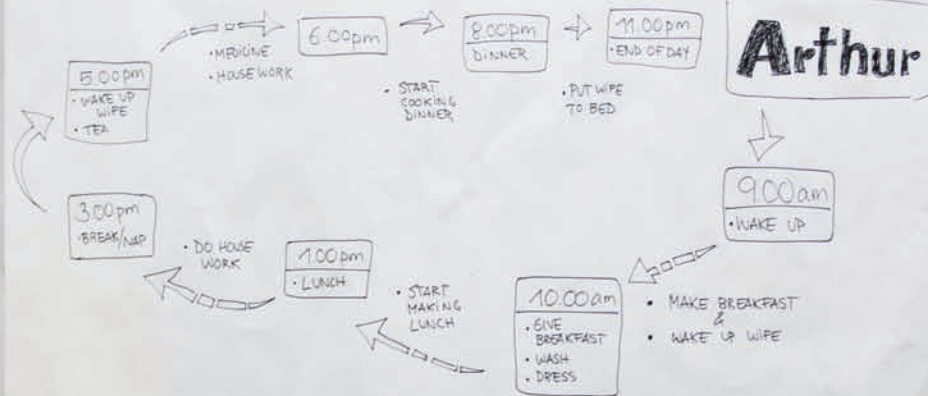 Arthur
9.00am
• WAKE UP
• MAKE BREAKFAST
&
• WAKE UP WIFE
10.00am
• GIVE
BREAKFAST
• WASH
• DRESS
• START
MAKING
LUNCH
1.00pm
• LUNCH
• DO HOUSE
WORK
3.00pm
• BREAK/NAP
5.00pm
• WAKE UP
WIFE
• TEA
• MEDICINE
• HOUSEWORK
6.00pm
• START
COOKING
DINNER
8.00pm
DINNER
• PUT WIFE
TO BED
11.00pm
• END OF DAY